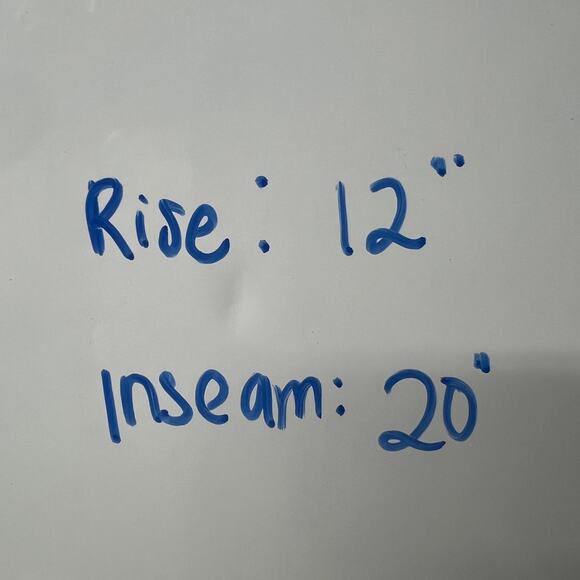 Rise: 12"
Inseam: 20"